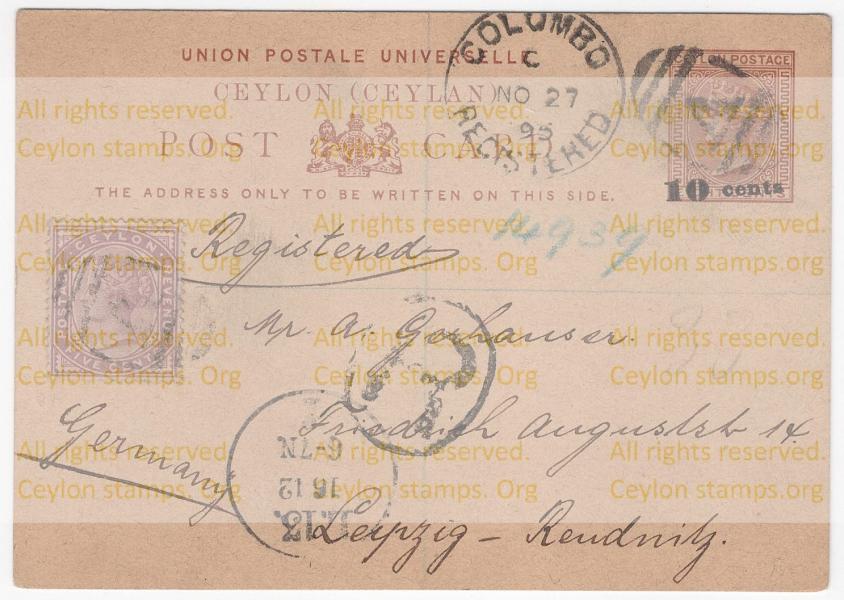 UNION POSTALE UNIVERSELLE
CEYLON (CEYLAN)
POST CARD
THE ADDRESS ONLY TO BE WRITTEN ON THIS SIDE.
COLOMBO
C
NO 27
95
REGISTERED
CEYLON POSTAGE
10 cents
Registered
14939
CEYLON
POSTAGE
REVENUE
FIVE CENTS
R
Mr. A. Gerhauser.
Friedrich Auguststr 14.
Germany
6-7N
16 12
Leipzig - Reudnitz.
All rights reserved.
Ceylon stamps.org
All rights reserved.
Ceylon stamps.org
All rights reserved.
Ceylon stamps.org
All rights reserved.
Ceylon stamps.org
All rights reserved.
Ceylon stamps.org
All rights reserved.
Ceylon stamps.org
All rights reserved.
Ceylon stamps. Org
All rights reserved.
Ceylon stamps. Org
All rights reserved.
Ceylon stamps. Org
All rights reserved.
Ceylon stamps. Org
All rights reserved.
Ceylon stamps. Org
All rights reserved.
Ceylon stamps. Org